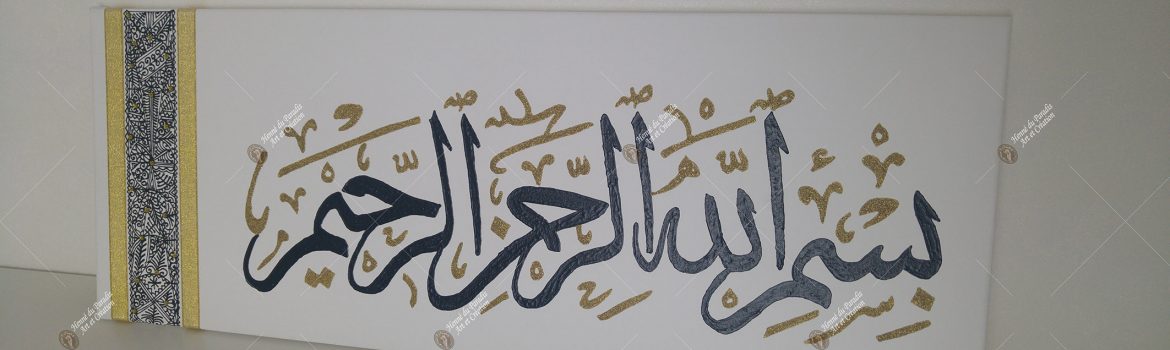 بسم الله الرحمن الرحيم
Henné du Paradis
Art et Création
Henné du Paradis
Art et Création
Henné du Paradis
Art et Création
Henné du Paradis
Art et Création
Henné du Paradis
Art et Création
Henné du Paradis
Art et Création